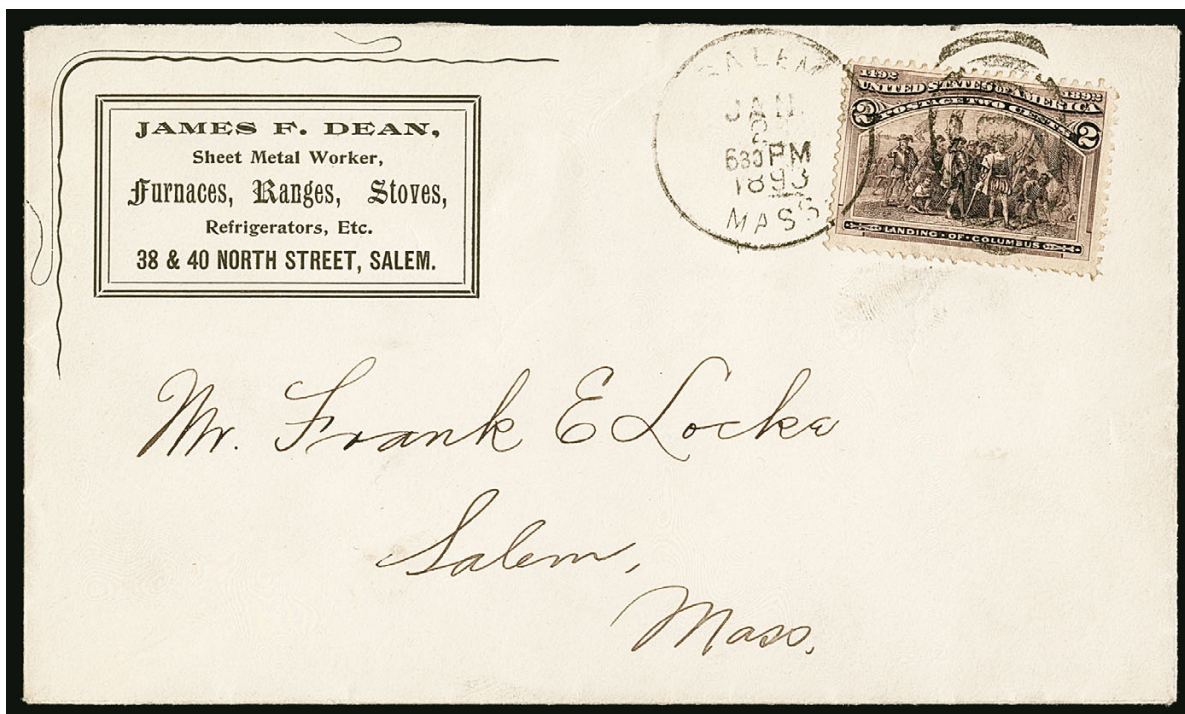 JAMES F. DEAN,
Sheet Metal Worker,
Furnaces, Ranges, Stoves,
Refrigerators, Etc.
38 & 40 NORTH STREET, SALEM.
SALEM
JAN.
2
630 PM
1893
MASS
1492 1892
UNITED STATES OF AMERICA
2 POSTAGE TWO CENTS 2
LANDING · OF · COLUMBUS
Mr. Frank E Locke
Salem,
Mass.